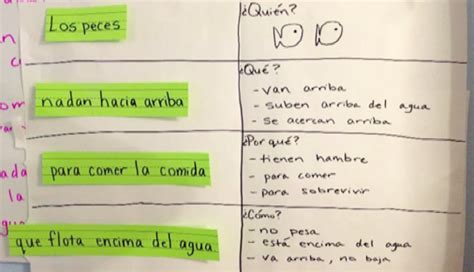 Los peces
¿Quién?
nadan hacia arriba
¿Qué?
- van arriba
- suben arriba del agua
- se acercan arriba
para comer la comida
¿Por qué?
- tienen hambre
- para comer
- para sobrevivir
que flota encima del agua
¿Cómo?
- no pesa
- está encima del agua
- va arriba, no baja